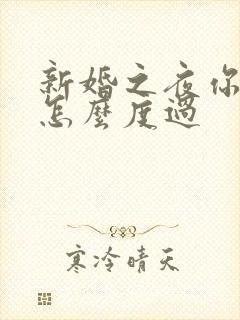 新婚之夜你
怎麼度過
寒冷晴天